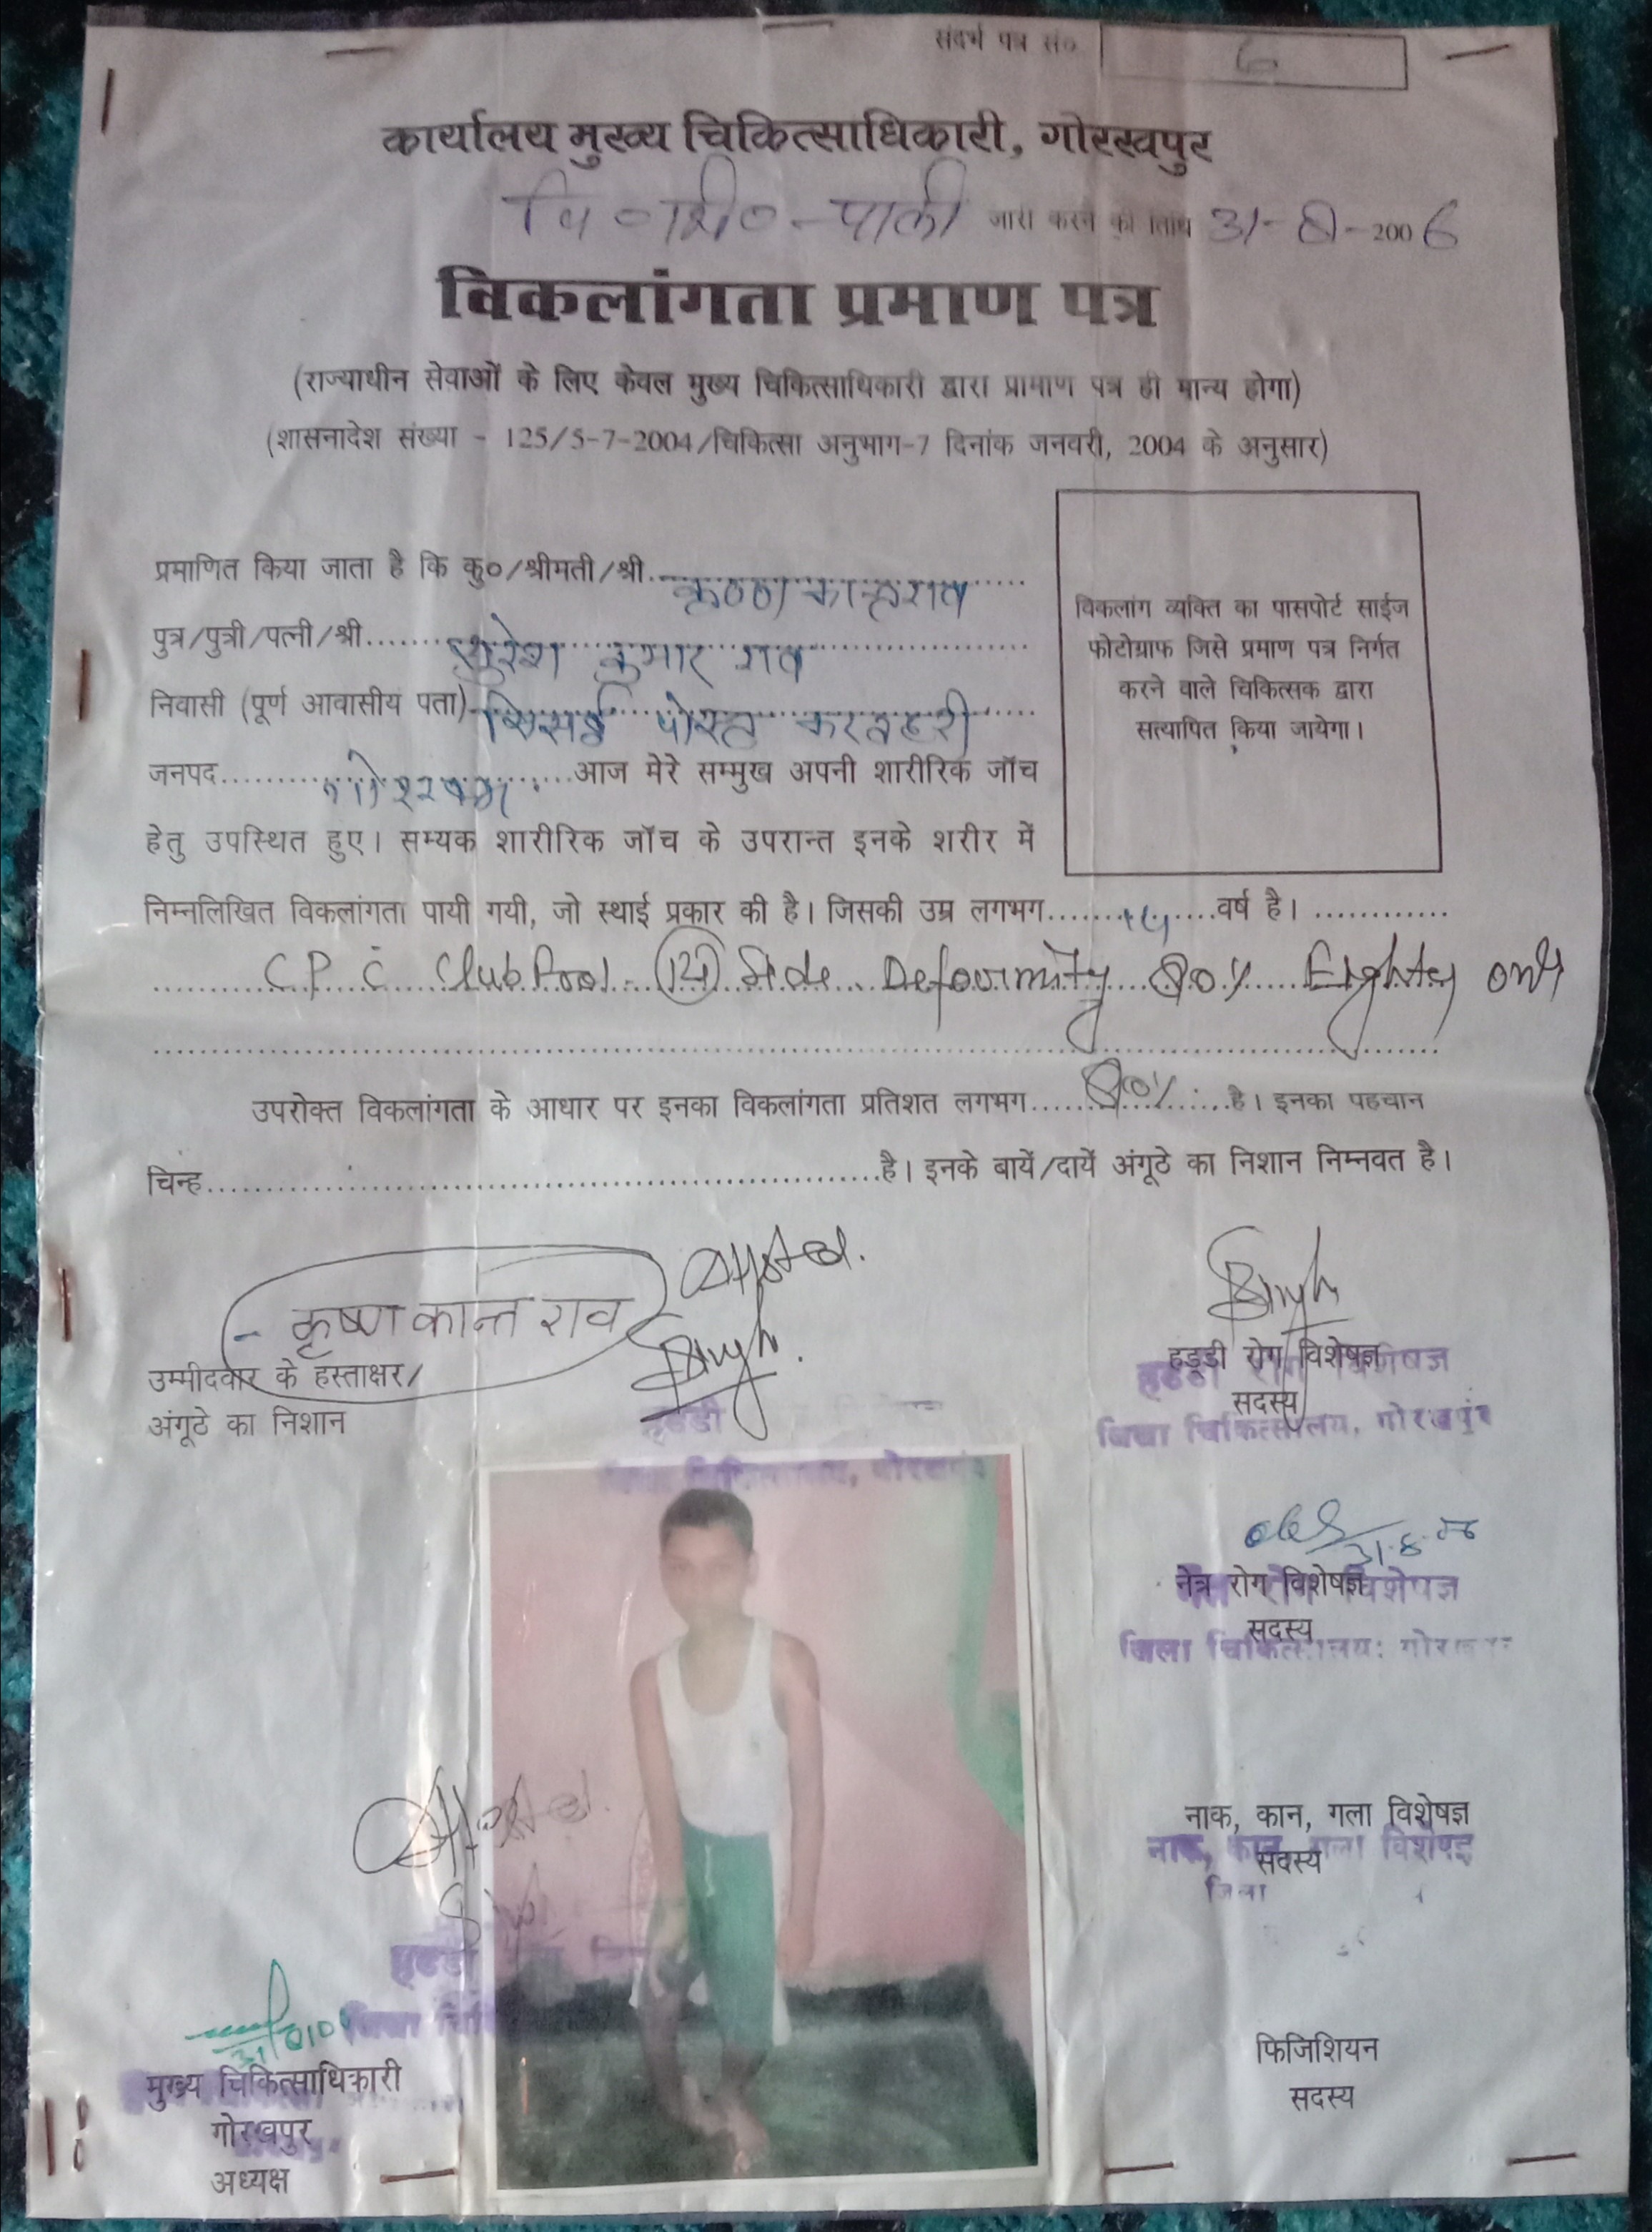 संदर्भ पत्र सं० 6
कार्यालय मुख्य चिकित्साधिकारी, गोरखपुर
जारी करने की तिथि 31-8-2006
विकलांगता प्रमाण पत्र
(राज्याधीन सेवाओं के लिए केवल मुख्य चिकित्साधिकारी द्वारा प्रामाण पत्र ही मान्य होगा)
(शासनादेश संख्या - 125/5-7-2004/चिकित्सा अनुभाग-7 दिनांक जनवरी, 2004 के अनुसार)
प्रमाणित किया जाता है कि कु०/श्रीमती/श्री. कृष्ण कान्त राव
पुत्र/पुत्री/पत्नी/श्री...... सुरेश कुमार राव
निवासी (पूर्ण आवासीय पता) सिसई पोस्ट करवहरी
जनपद........ गोरखपुर ......आज मेरे सम्मुख अपनी शारीरिक जॉच
हेतु उपस्थित हुए। सम्यक शारीरिक जॉच के उपरान्त इनके शरीर में
विकलांग व्यक्ति का पासपोर्ट साईज
फोटोग्राफ जिसे प्रमाण पत्र निर्गत
करने वाले चिकित्सक द्वारा
सत्यापित किया जायेगा।
निम्नलिखित विकलांगता पायी गयी, जो स्थाई प्रकार की है। जिसकी उम्र लगभग........वर्ष है। ............
Side Deformity 80% Eighty only
उपरोक्त विकलांगता के आधार पर इनका विकलांगता प्रतिशत लगभग..... 80% .....है। इनका पहचान
चिन्ह................................................है। इनके बायें/दायें अंगूठे का निशान निम्नवत है।
कृष्ण कान्त राव
Attested.
Singh.
उम्मीदवार के हस्ताक्षर/
अंगूठे का निशान
हड्डी
चिकित्सालय, गोरखपुर
Singh
हड्डी रोग विशेषज्ञ
हड्डी रोग विशेषज्ञ
सदस्य
जिला चिकित्सालय, गोरखपुर
31.8.06
नेत्र रोग विशेषज्ञ
नेत्र रोग विशेषज्ञ
सदस्य
जिला चिकित्सालय: गोरखपुर
नाक, कान, गला विशेषज्ञ
नाक, कान, गला विशेषज्ञ
सदस्य
जिला
फिजिशियन
सदस्य
Attested.
हड्डी
जिला
मुख्य चिकित्साधिकारी
गोरखपुर
अध्यक्ष